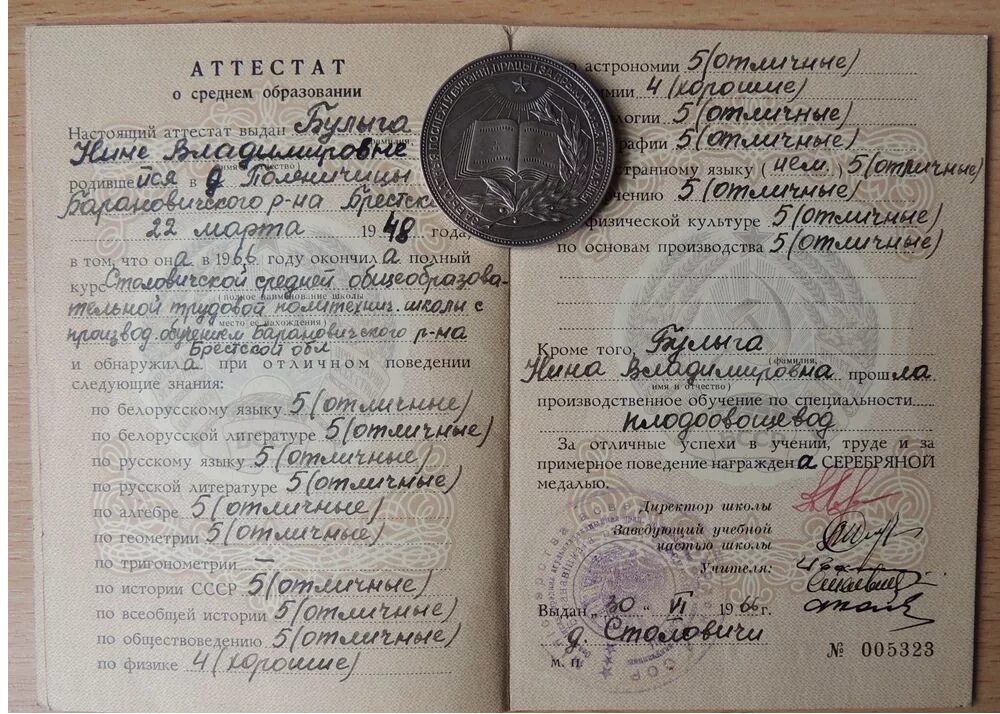 АТТЕСТАТ
о среднем образовании
Настоящий аттестат выдан Булыга
Нине Владимировне
родившейся в д Полничицы
Барановичского р-на Брестск
22 марта 1948 года,
в том, что она в 1966 году окончила полный
курс Столовичской средней общеобразова-
(полное наименование школы
тельной трудовой политехнич. школы с
и место ее нахождения)
производ. обучением Барановичского р-на
Брестской обл
и обнаружила при ОТЛИЧНОМ поведении
следующие знания:
по белорусскому языку 5 (отличные)
по белорусской литературе 5 (отличные)
по русскому языку 5 (отличные)
по русской литературе 5 (отличные)
по алгебре 5 (отличные)
по геометрии 5 (отличные)
по тригонометрии —
по истории СССР 5 (отличные)
по всеобщей истории 5 (отличные)
по обществоведению 5 (отличные)
по физике 4 (хорошие)
по астрономии 5 (отличные)
имии 4 (хорошие)
логии 5 (отличные)
графии 5 (отличные)
странному языку (нем.) 5 (отличные)
чению 5 (отличные)
физической культуре 5 (отличные)
по основам производства 5 (отличные)
Кроме того, Булыга
(фамилия,
Нина Владимировна прошла
имя и отчество)
производственное обучение по специальности
плодоовощевод
За отличные успехи в учении, труде и за
примерное поведение награждена СЕРЕБРЯНОЙ
медалью.
Директор школы
Заведующий учебной
частью школы
Учителя:
Выдан „30" VI 1966 г.
д. Столовичи
М. П.
№ 005323